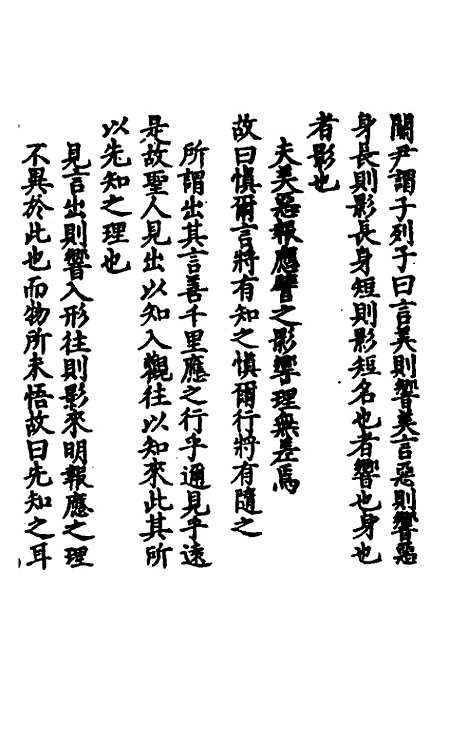 關尹謂子列子曰言美則響美言惡則響惡
身長則影長身短則影短名也者響也身也
者影也
夫美惡報應譬之影響理無差焉
故曰慎爾言將有知之慎爾行將有隨之
所謂出其言善千里應之行乎邇見乎遠
是故聖人見出以知入觀往以知來此其所
以先知之理也
見言出則響入形往則影來明報應之理
不異於此也而物所未悟故曰先知之耳